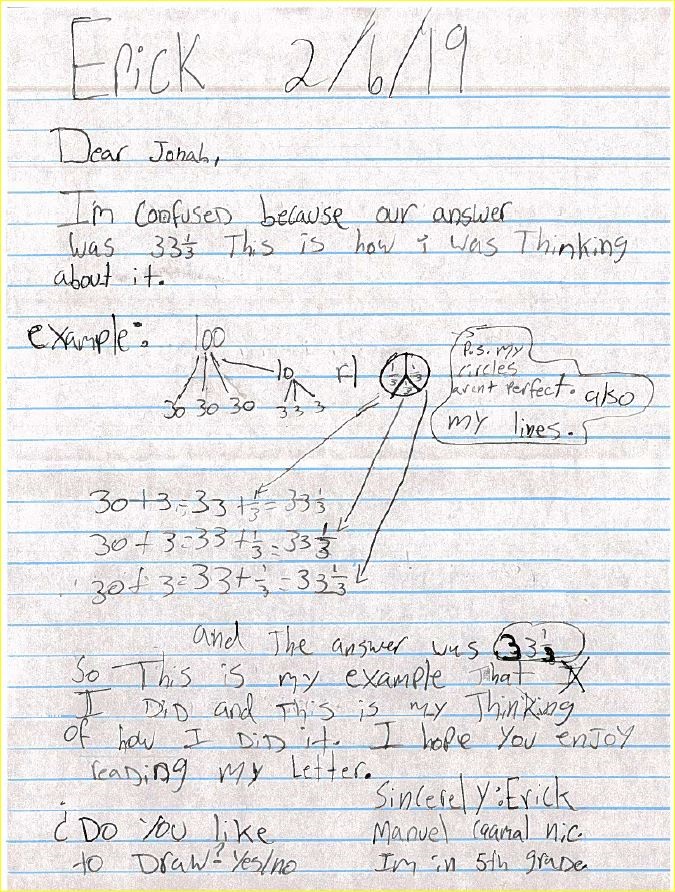 Erick 2/6/19
Dear Jonah,
I'm confused because our answer
was 33⅓ This is how i was Thinking
about it.
example: 100
10 r1 ⅓ ⅓ ⅓
30 30 30 3 3 3
P.S. my
circles
arent perfect. also
my lines.
30+3=33+⅓=33⅓
30+3=33+⅓=33⅓
30+3=33+⅓=33⅓
and The answer was 33⅓
So This is my example that
I DiD and This is my Thinking
of how I DiD it. I hope you enjoy
reading my Letter.
Sincerely: Erick
Manuel Caamal nic.
Im in 5th grade.
¿Do You like
to Draw? Yes/no